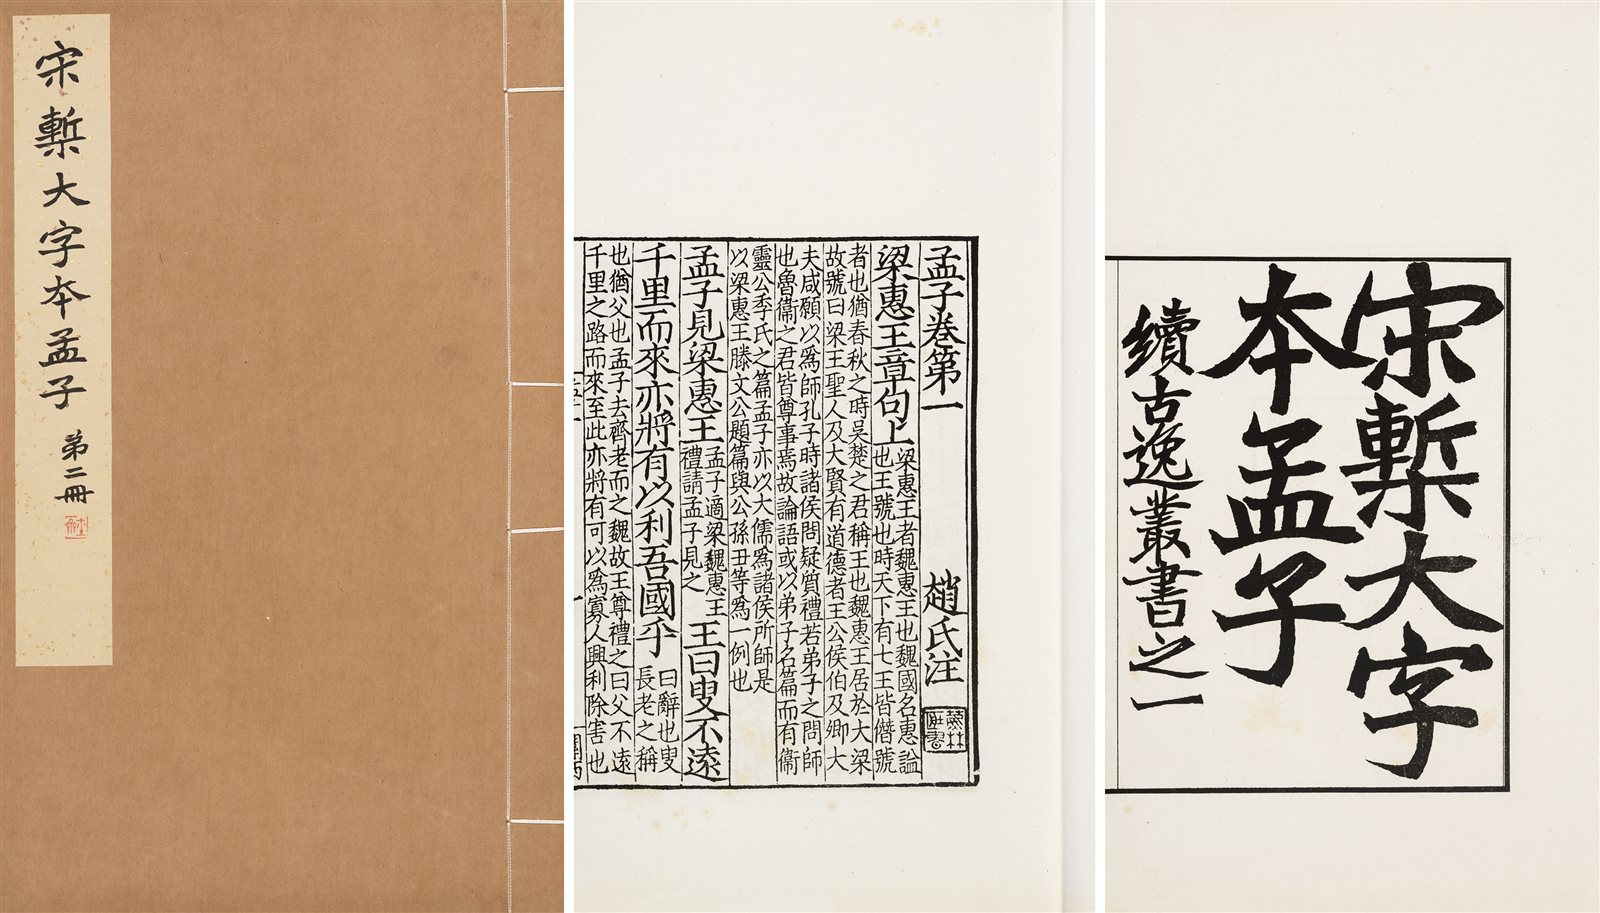 宋槧大字本孟子 第二冊
孟子卷第一 趙氏注
梁惠王章句上 梁惠王者魏惠王也魏國名惠謚
也王號也時天下有七王皆僭號
者也猶春秋之時吳楚之君稱王也魏惠王居於大梁
故號曰梁王聖人及大賢有道德者王公侯伯及卿大
夫咸願以爲師孔子時諸侯問疑質禮若弟子之問師
也魯衞之君皆尊事焉故論語或以弟子名篇而有衞
靈公季氏之篇孟子亦以大儒爲諸侯所師是
以梁惠王滕文公題篇與公孫丑等爲一例也
孟子見梁惠王 孟子適梁魏惠王
禮請孟子見之 王曰叟不遠
千里而來亦將有以利吾國乎 曰辭也叟
長老之稱
也猶父也孟子去齊老而之魏故王尊禮之曰父不遠
千里之路而來至此亦將有可以爲寡人興利除害也
宋槧大字
本孟子
續古逸叢書之一